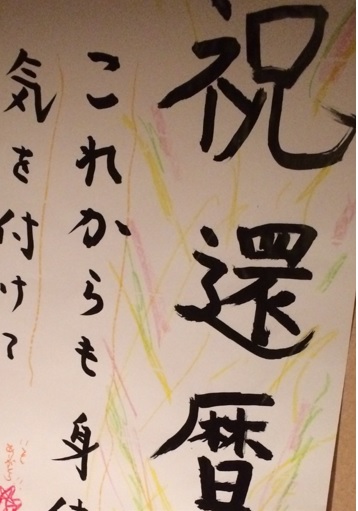 祝還暦
これからも身
気を付けて